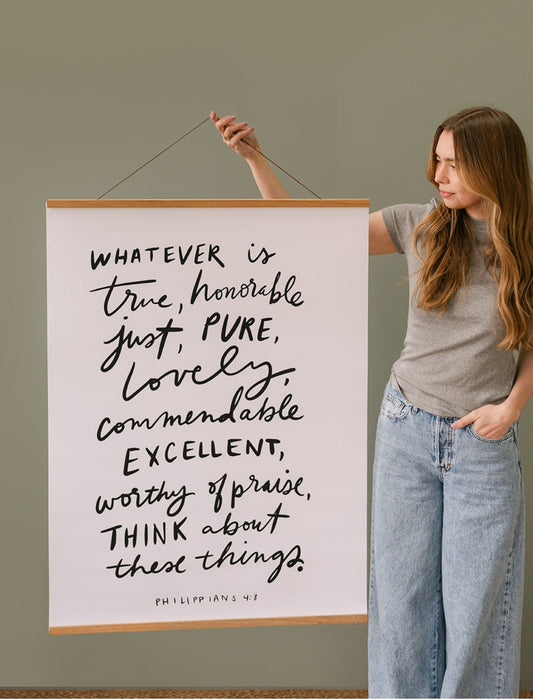 WHATEVER is
true, honorable
just, PURE,
lovely,
commendable
EXCELLENT,
worthy of praise,
THINK about
these things.
PHILIPPIANS 4:8